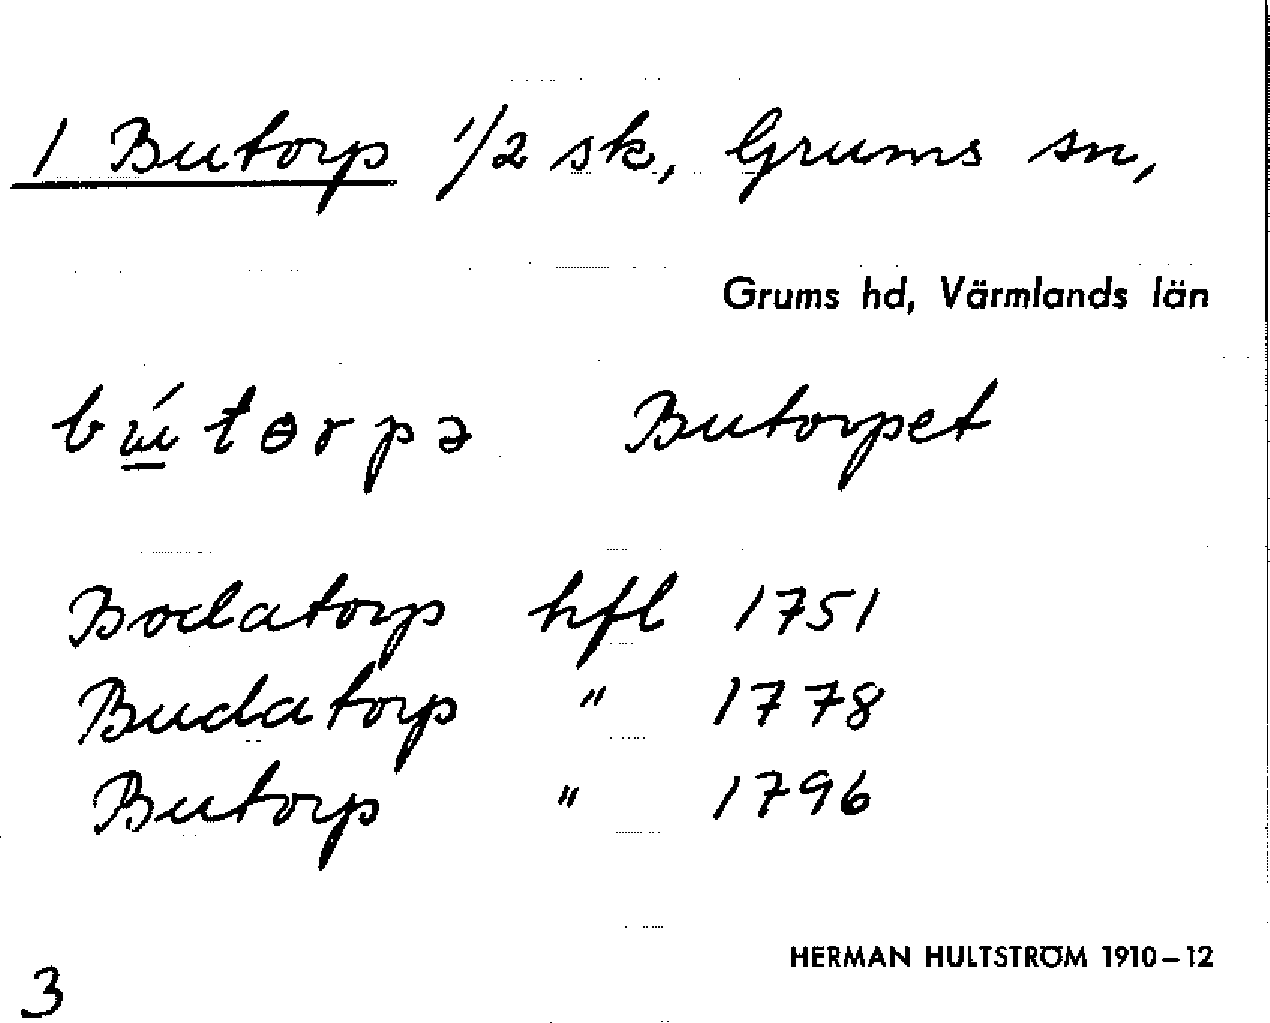 1 Butorp 1/2 sk, Grums sn,
Grums hd, Värmlands län
bú̲tɵrpə Butorpet
Bodatorp hfl 1751
Budatorp " 1778
Butorp " 1796
HERMAN HULTSTRÖM 1910–12
3